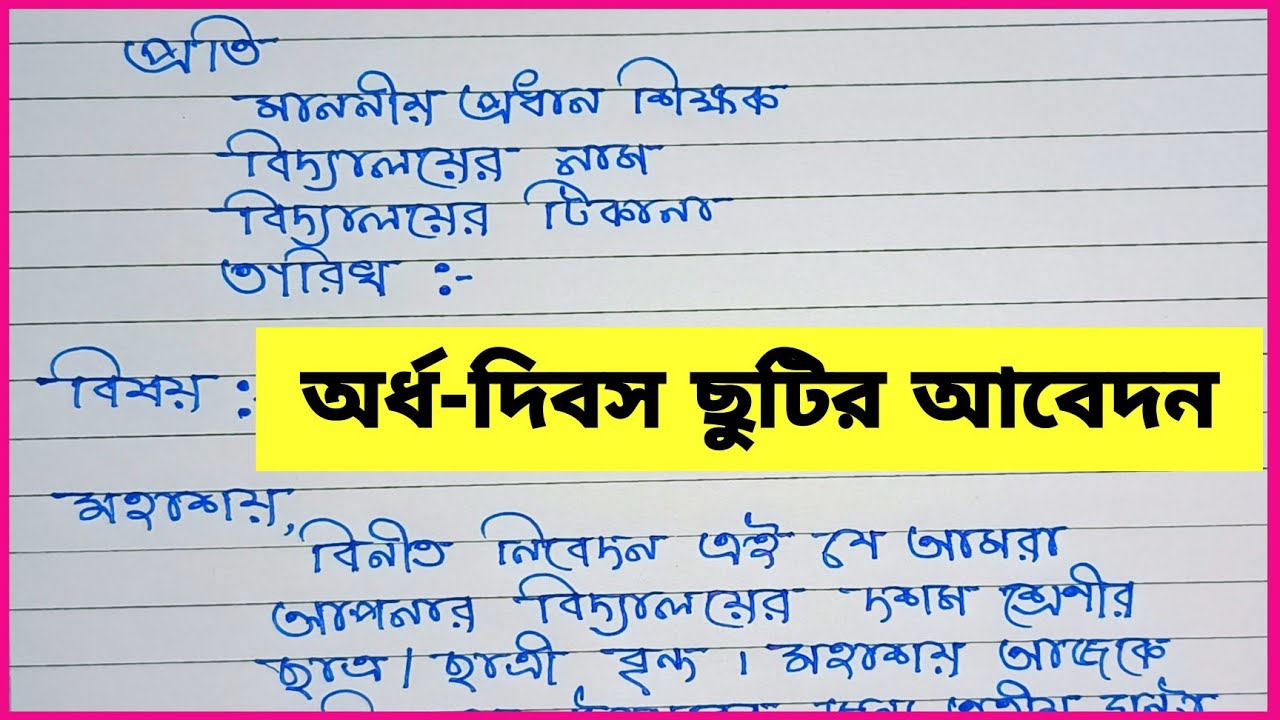 প্রতি
মাননীয় প্রধান শিক্ষক
বিদ্যালয়ের নাম
বিদ্যালয়ের ঠিকানা
তারিখ :-
বিষয় : অর্ধ-দিবস ছুটির আবেদন
মহাশয়,
বিনীত নিবেদন এই যে আমরা
আপনার বিদ্যালয়ের দশম শ্রেণীর
ছাত্র / ছাত্রী বৃন্দ । মহাশয় আজেকে